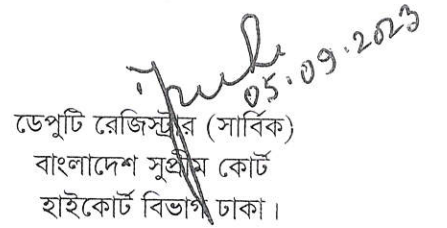 05.09.2023
ডেপুটি রেজিস্ট্রার (সার্বিক)
বাংলাদেশ সুপ্রীম কোর্ট
হাইকোর্ট বিভাগ ঢাকা।